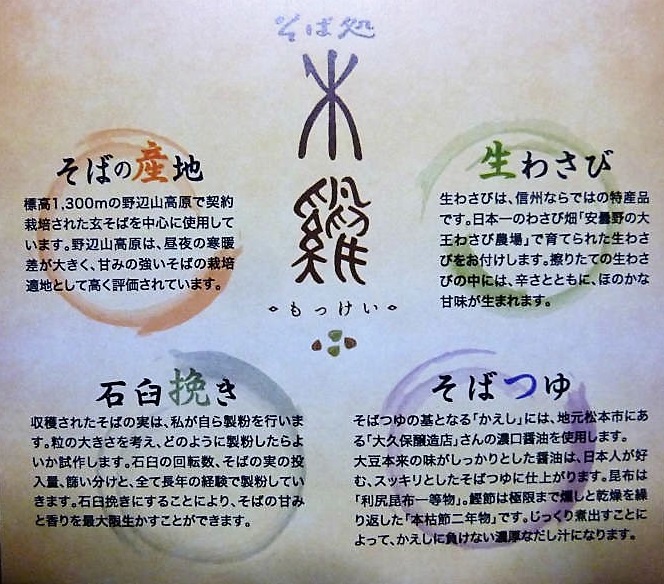 そば処
木鶏
・もっけい・
そばの産地
標高1,300mの野辺山高原で契約
栽培された玄そばを中心に使用して
います。野辺山高原は、昼夜の寒暖
差が大きく、甘みの強いそばの栽培
適地として高く評価されています。
生わさび
生わさびは、信州ならではの特産品
です。日本一のわさび畑「安曇野の大
王わさび農場」で育てられた生わさ
びをお付けします。擦りたての生わさ
びの中には、辛さとともに、ほのかな
甘味が生まれます。
石臼挽き
収穫されたそばの実は、私が自ら製粉を行いま
す。粒の大きさを考え、どのように製粉したらよ
いか試作します。石臼の回転数、そばの実の投
入量、篩い分けと、全て長年の経験で製粉してい
きます。石臼挽きにすることにより、そばの甘み
と香りを最大限生かすことができます。
そばつゆ
そばつゆの基となる「かえし」には、地元松本市にあ
る「大久保醸造店」さんの濃口醤油を使用します。
大豆本来の味がしっかりとした醤油は、日本人が好
む、スッキリとしたそばつゆに仕上がります。昆布は
「利尻昆布一等物」。鰹節は極限まで燻しと乾燥を繰
り返した「本枯節二年物」です。じっくり煮出すことに
よって、かえしに負けない濃厚なだし汁になります。